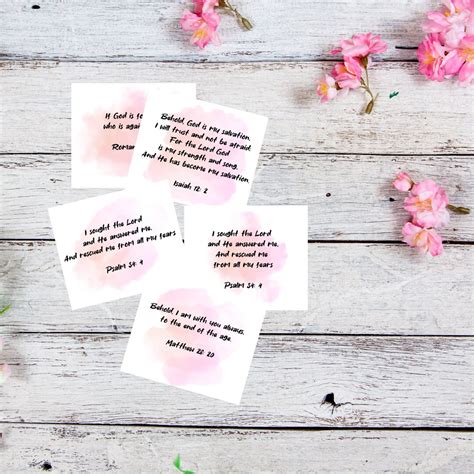 If God is
who is
Behold, God is my salvation,
I will trust and not be afraid;
For the Lord God
is my strength and song,
And He has become my salvation.
Isaiah 12: 2
I sought the Lord
and He answered me,
And rescued me from all my fears
Psalm 34: 4
I sought the Lord
and He answered me,
And rescued me
from all my fears
Psalm 34: 4
Behold, I am with you always,
to the end of the age.
Matthew 28: 20